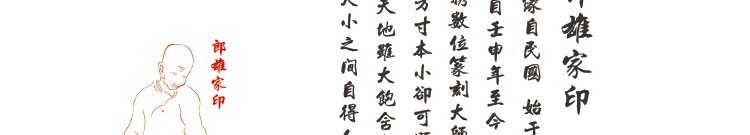 郎雄家印
家自民國 始于
自壬申年至今
數位篆刻大師
方寸本小卻可
天地雖大飽
大小之間自得
郎雄家印